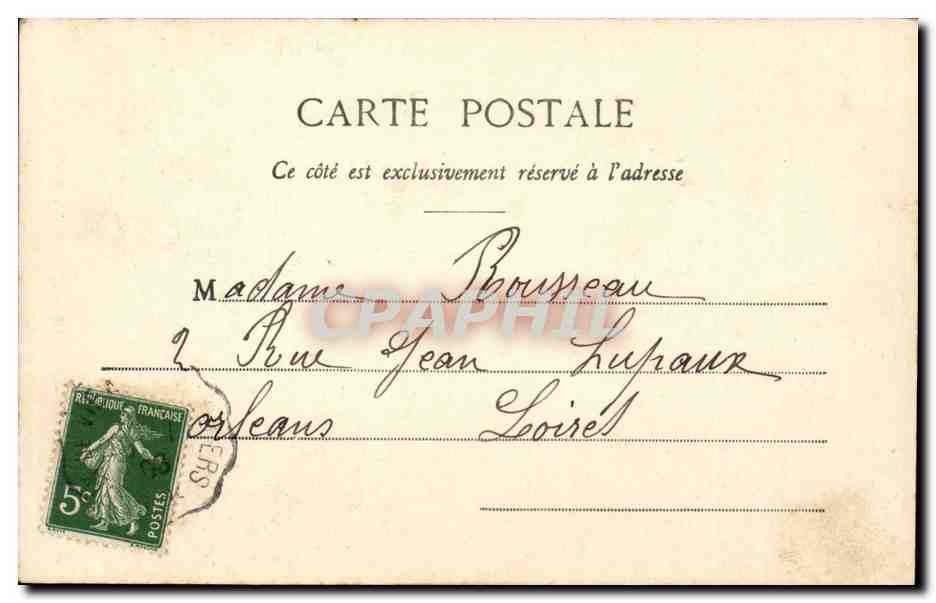 CARTE POSTALE
Ce côté est exclusivement réservé à l'adresse
Madame Rousseau
2 Rue Jean Lupaux
orleans Loiret
CPARPHIL
REPUBLIQUE FRANÇAISE
5c
POSTES
ERS